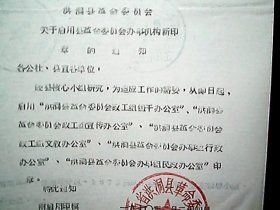 洪洞县革命委员会
关于启用县革命委员会办事机构新印
章的通知
各公社、县直各单位:
经县核心小组研究,为适应工作的需要,从即日起,
启用“洪洞县革命委员会政工组干办公室”、“洪洞县
革命委员会政工组宣传办公室”、“洪洞县革命委员会
政工组文教办公室”、“洪洞县革命委员会办事组行政
办公室”、“洪洞县革命委员会办事组民政办公室”印
章。
特此通知
附启用印模
省洪洞县革命委